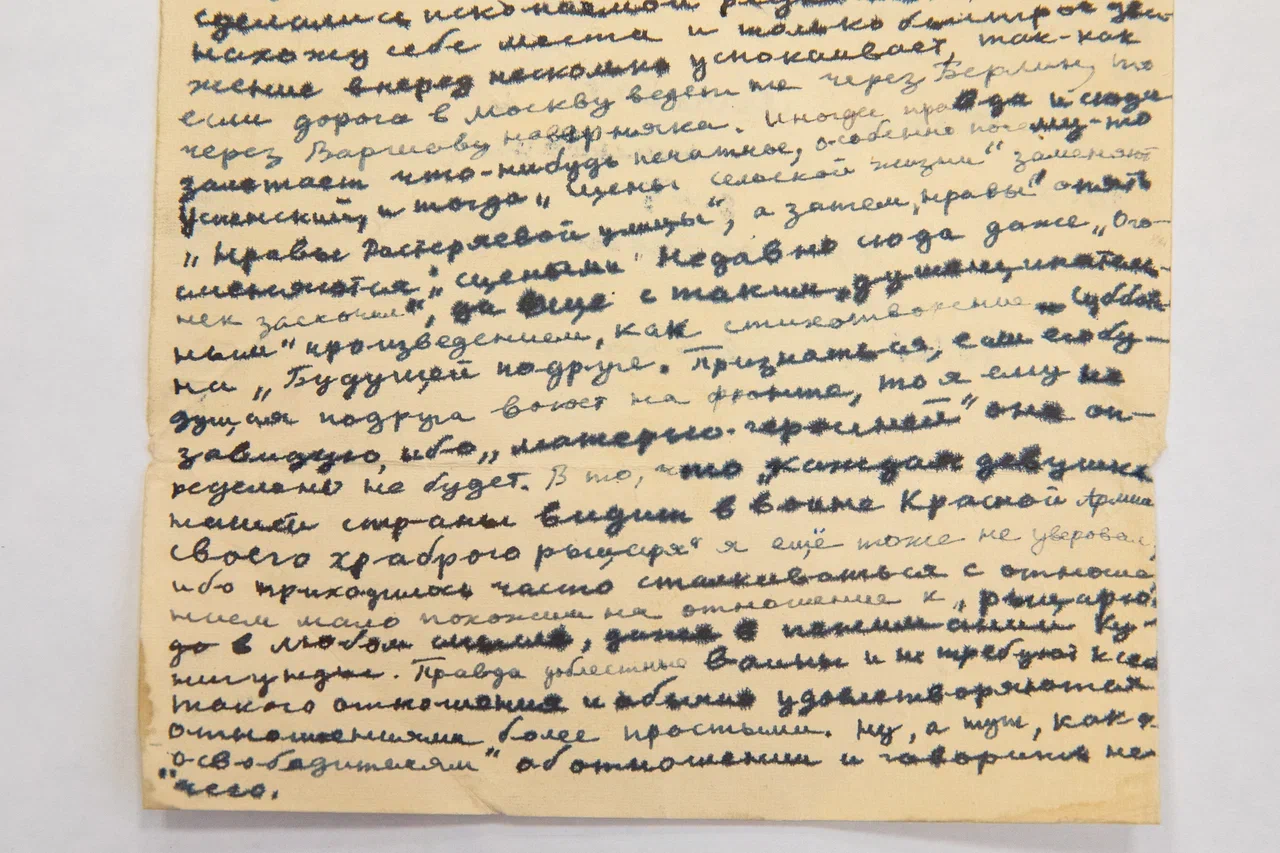 сделались ископаемой
нахожу себе места и только быстрое дви-
жение вперед несколько успокаивает, так-как
если дорога в Москву ведет не через Берлин, то
через Варшаву наверняка. Иногда правда и сюда
залетает что-нибудь печатное, особенно почему-то
Успенский, и тогда „сцены сельской жизни“ заменяют
„Нравы Растеряевой улицы“, а затем „нравы“ опять
сменяются „сценами“. Недавно сюда даже „Ого-
нек“ заскочил, да еще с таким „душещипатель-
ным“ произведением, как стихотворение Суббо-
на „Будущей подруге. Признаться, если его бу-
дущая подруга воюет на фронте, то я ему не
завидую, ибо „матерью-героиней“ она оп-
ределенно не будет. В то, что „каждая девушка
нашей страны видит в воине Красной Армии
своего храброго рыцаря“ я ещё тоже не уверовал,
ибо приходилось часто сталкиваться с отноше-
нием мало похожим на отношение к „рыцарю“
да в любом смысле, даже в понимании Ку-
нигунды. Правда доблестные воины и не требуют к себе
такого отношения и обычно удовлетворяются
отношениями более простыми. Ну, а тут, как о
„освободителям“ об отношении и говорить не-
чего.